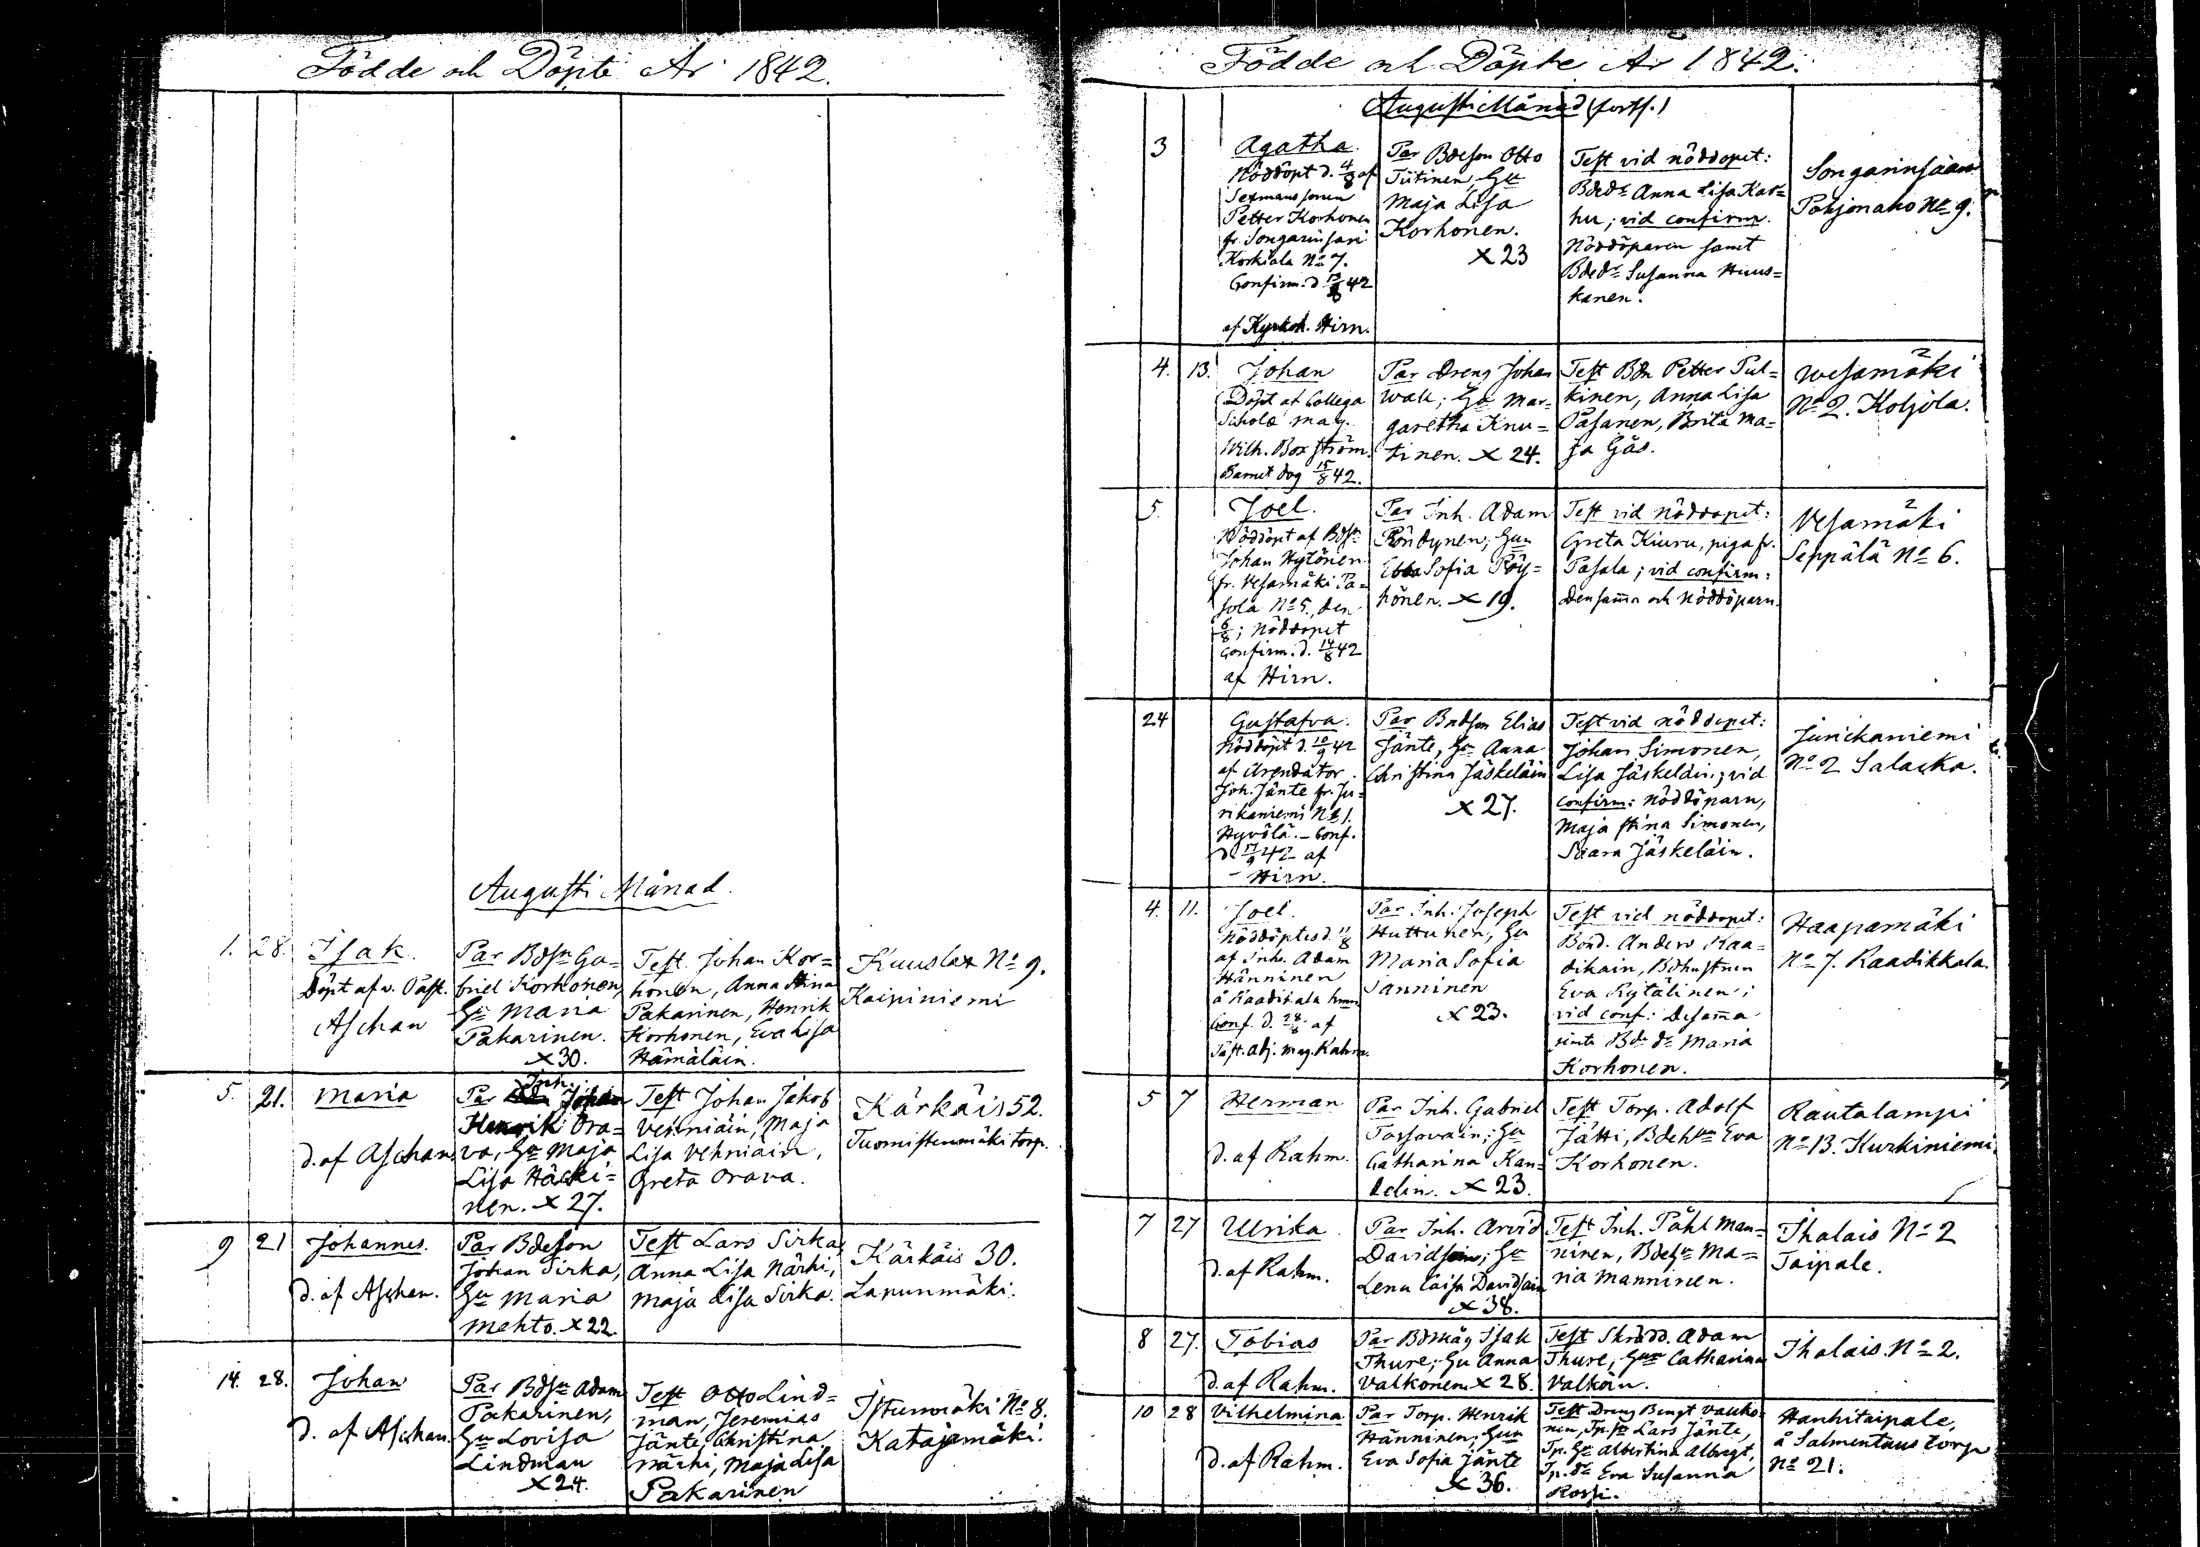 Födde och Döpte År 1842.
Augusti Månad.
1. 28. Isak.
Döpt af v. Past.
Aschan
Par Bdsn Ga=
briel Korhonen,
Hu Maria
Pakarinen.
x 30.
Test. Johan Kor=
honen, Anna Stina
Pakarinen, Henrik
Korhonen, Eva Lisa
Hämäläin.
Kuuslax No 9.
Kaipiniemi
5. 21. Maria
d. af Aschan
Par Inh. Johan
Henrik Ora=
va, Hu Maja
Lisa Häcki=
nen. x 27.
Test Johan Jakob
Vehniäin, Maja
Lisa Vehniäin,
Greta Orava.
Kärkäis 52.
Tuomistenmäki torp.
9 21 Johannes.
d. af Aschan.
Par Bdeson
Johan Sirka,
Hu Maria
Mehto. x 22
Test Lars Sirka,
Anna Lisa Närhi,
Maja Lisa Sirka.
Kärkäis 30.
Lapunmäki.
14. 28. Johan
D. af Aschan.
Par Bdsn Adam
Pakarinen,
Hu Lovisa
Lindman
x 24.
Test Otto Lind=
man, Jeremias
Jänte, Christina
Närhi, Maja Lisa
Pakarinen
Istunmäki No 8.
Katajamäki.
Födde och Döpte År 1842.
Augusti Månad (forts.)
3 Agatha
Nöddöpt d. 4/8 af
Sexmanssonen
Petter Korhonen
fr. Songarinsari
Korkiala No 7.
Confirm. d. 13/8 42
af Kyrkoh. Hirn.
Par Bdeson Otto
Tiitinen, Hu
Maja Lisa
Korhonen.
x 23
Test vid nöddopet:
Bdedr Anna Lisa Kar=
hu; vid confirm.
Nöddöparen samt
Bdedr Susanna Huus=
kanen.
Songarinsaari
Pohjonaho No 9.
4. 13. Johan
Döpt af Collega
Scholæ Mag.
Wilh. Boxström.
Barnet dog 15/8 42.
Par Dreng Johan
Wall; Hu Mar=
garetha Knu=
tinen. x 24.
Test Bdn Petter Pul=
kinen, Anna Lisa
Pasanen, Brita Ma=
ja Gås.
Wesamäki
No 2. Koljola.
5. Joel.
Nöddöpt af Bdsn
Johan Hytönen
fr. Vesamäki Pa=
sola No 5, den
6/8; nöddopet
Confirm. d. 14/8 42
af Hirn.
Par Inh. Adam
Pöndynen; Hun
Ebba Sofia Pöy=
hönen. x 19.
Test vid nöddopet:
Greta Kiuru, piga fr.
Pasala; vid confirm:
Densamma och nöddöparn.
Vesamäki
Seppälä No 6.
24 Gustafva.
Nöddöpt d. 10/9 42
af Arendator
Joh. Jänte fr. Ju=
nikaniemi No 1.
Hyvölä. - Conf.
d. 17/9 42 af
- Hirn.
Par Bndson Elias
Jänte, Hu Anna
Christina Jäskeläin
x 27.
Test vid nöddopet:
Johan Simonen,
Lisa Jäskeläin; vid
confirm: nöddöparn,
Maja Stina Simonen,
Saara Jäskeläin.
Junickaniemi
No 2 Salacka.
4. 11. Joel.
Nöddöptes d. 11/8
af Inh. Adam
Hänninen
å Raadikala hmn
Conf. d. 28/8 af
Past. Adj. Mag. Rahm.
Par Inh. Joseph
Huttunen, Hu
Maria Sofia
Janninen
x 23.
Test vid nöddopet:
Bond. Anders Raa=
dikain, Bdhustrun
Eva Kytälinen;
vid conf: Desamma
samt Bdedr Maria
Korhonen.
Haapamäki
No 7. Raadikkala.
5 7 Herman
d. af Rahm.
Par Inh. Gabriel
Tossavain; Hu
Catharina Kan=
delin. x 23.
Test Torp. Adolf
Jätti, Bdehun Eva
Korhonen.
Rautalampi
No 13. Kurkiniemi.
7 27 Ulrika
d. af Rahm.
Par Inh. Arvid
Davidsain; Hu
Lena Caisa Davidsain
x 38.
Test Inh. Påhl Man=
ninen, Bdehu Ma=
ria Manninen.
Ihalais No 2
Taipale.
8 27. Tobias
d. af Rahm.
Par Bdmåg Isak
Thure; Hu Anna
Valkonen x 28.
Test Skrädd. Adam
Thure, Hun Catharina
Valkoin.
Ihalais No 2.
10 28 Vilhelmina
d. af Rahm.
Par Torp. Henrik
Hänninen; Hun
Eva Sofia Jänte
x 36.
Test Dreng Bengt Vauhko=
nen, Tp.sn Lars Jänte,
Tp. Hu Albertina Albregt,
Tp.dr Eva Susanna
Rossi.
Hanhitaipale,
å Salmentaus torp
No 21.